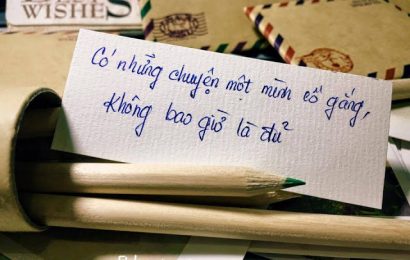 WISHES
Có những chuyện một mình cố gắng,
Không bao giờ là đủ